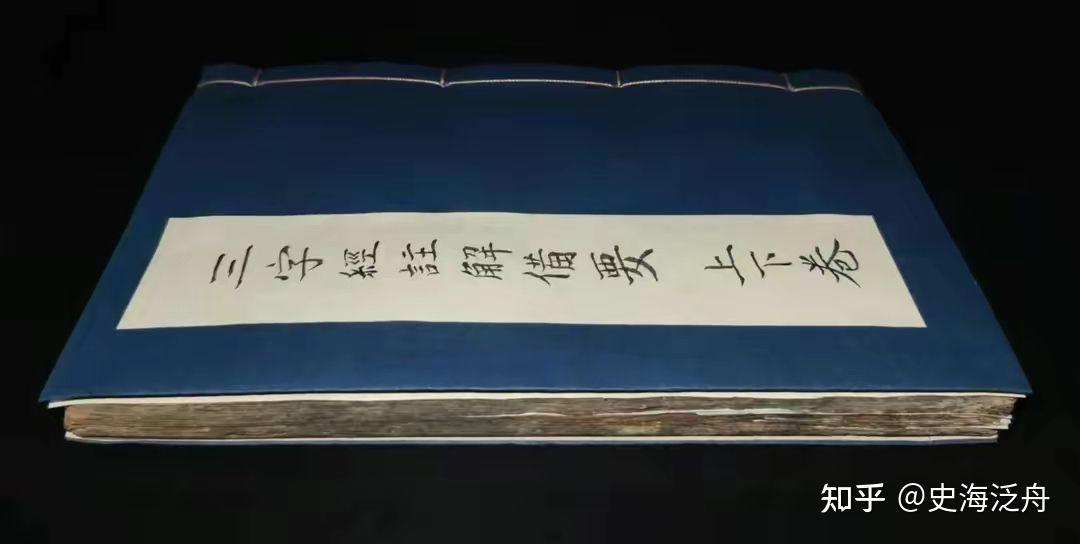 三字經註解備要 上下卷
知乎 @史海泛舟